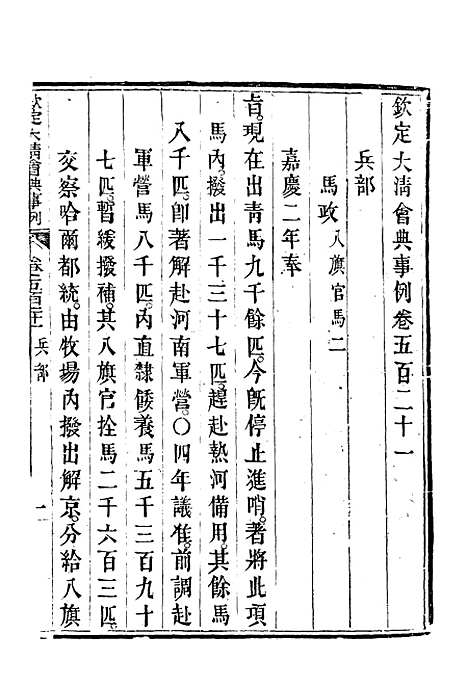 欽定大清會典事例卷五百二十一
兵部
馬政八旗官馬二
嘉慶二年奉
旨。現在出青馬九千餘匹。今既停止進哨。著將此項
馬內。撥出一千三十七匹。趕赴熱河備用。其餘馬
八千匹。卽著解赴河南軍營。〇四年議准。前調赴
軍營馬八千匹。內直隸餧養馬五千三百九十
七匹。暫緩撥補。其八旗官拴馬二千六百三匹。
交察哈爾都統。由牧場內撥出解京。分給八旗
欽定大清會典事例 卷五百二十一 兵部 一